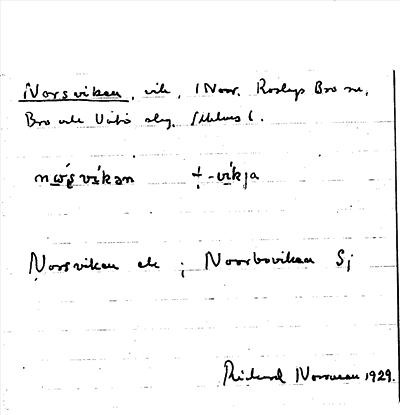 Norsviken, vik, i Noor, Roslags Bro sn,
Bro och Vätö slg, Sthlms l.
nẃṣvíkən ṭ -víkja
Norsviken ek ; Noorboviken Sj
Rickard Norrman 1929.